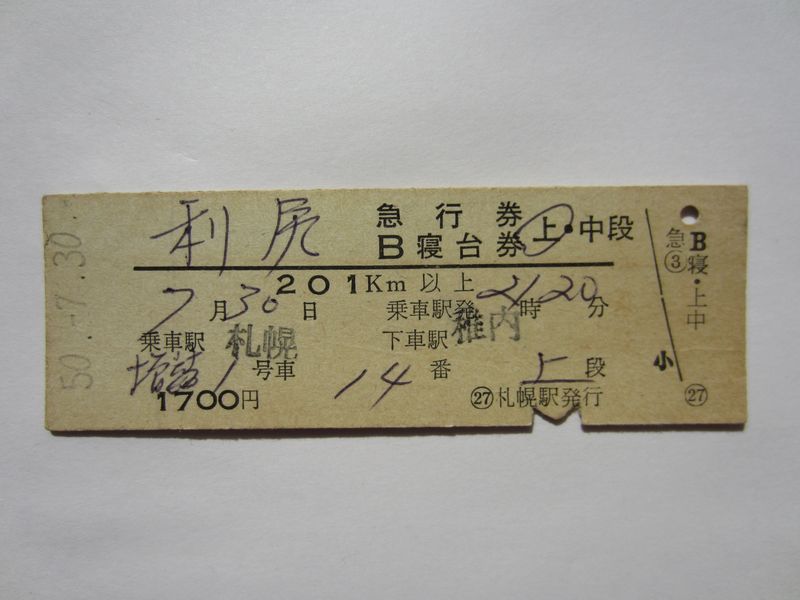 50.-7.30
利尻
急行券
B寝台券 上・中段
201Km以上
7月30日 乗車駅発21時20分
乗車駅 札幌 下車駅 稚内
増結1号車 14番 上段
1700円 ㉗札幌駅発行
急③
B寝・上中
小
㉗